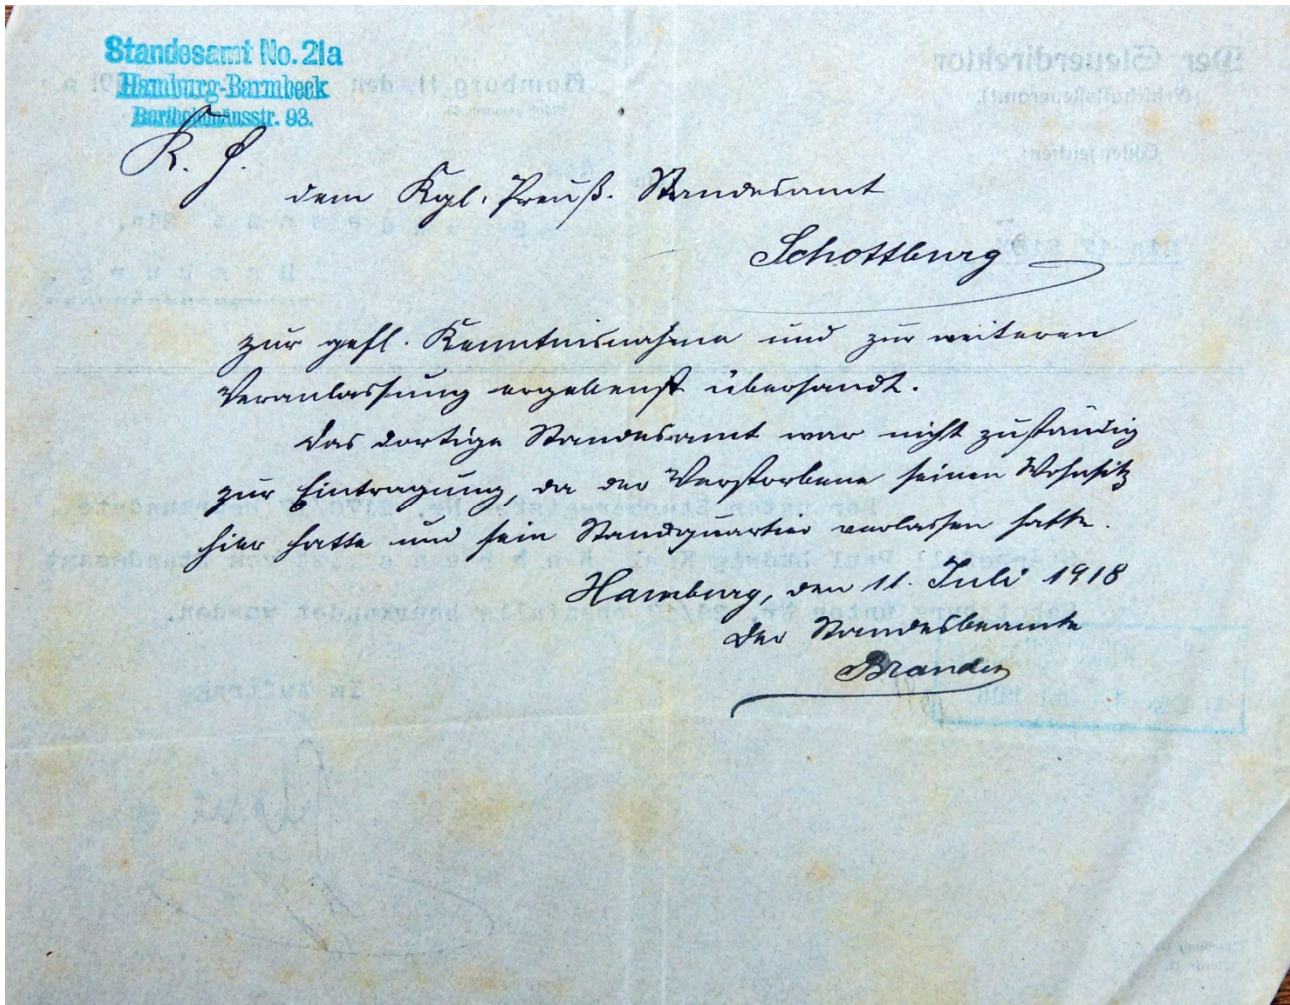 Standesamt No. 21a
Hamburg-Barmbeck
Bartholomäusstr. 93.
K. H.
dem Kgl. Preuß. Standesamt
Schottburg
zur gefl. Kenntnisnahme und zur weiteren
Veranlassung ergebenst übersandt.
Das dortige Standesamt war nicht zuständig
zur Eintragung, da der Verstorbene seinen Wohnsitz
hier hatte und sein Standquartier verlassen hatte.
Hamburg, den 11. Juli 1918
Der Standesbeamte